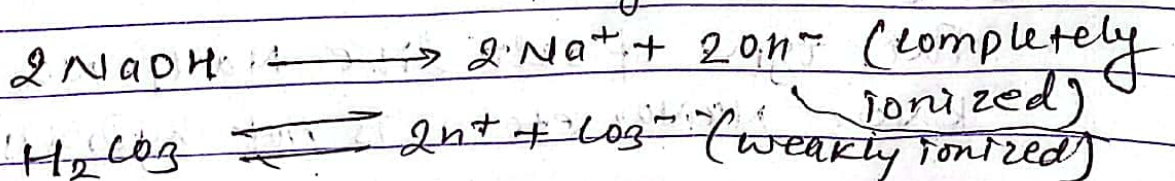 2 NaOH ⟶ 2 Na⁺ + 2OH⁻ (completely
ionized)
H₂CO₃ ⇌ 2H⁺ + CO₃⁻⁻ (weakly ionized)